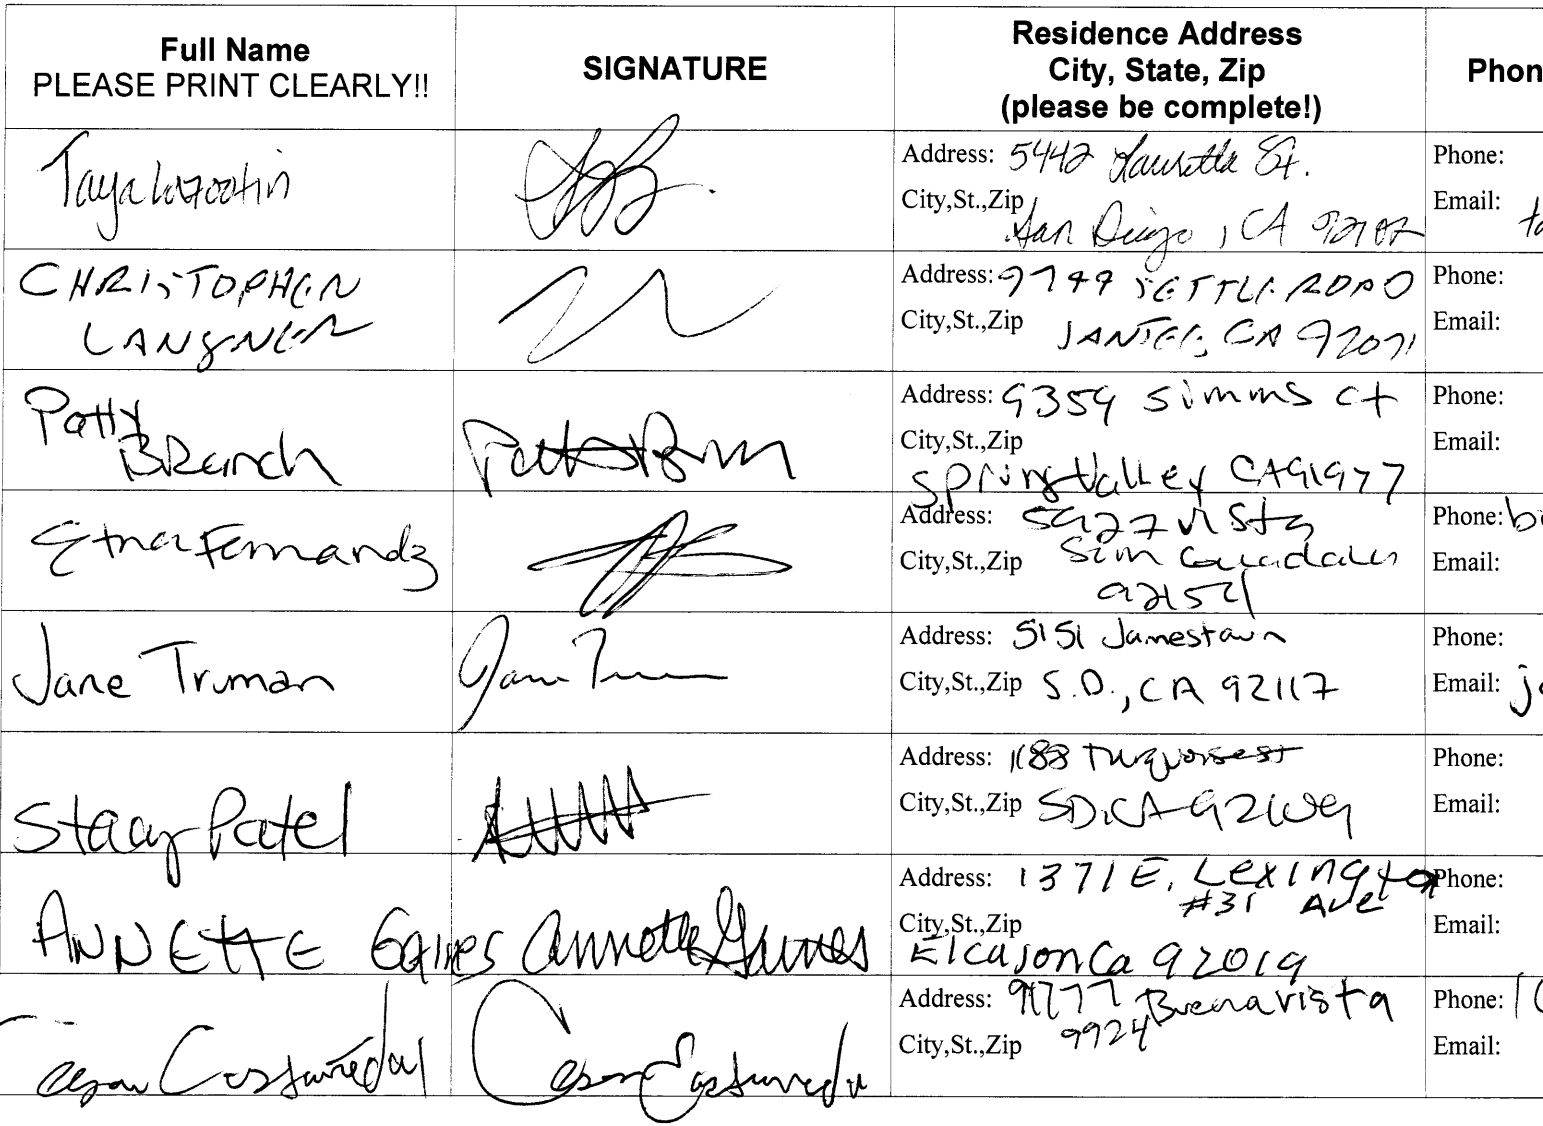 Full Name
PLEASE PRINT CLEARLY!!
SIGNATURE
Residence Address
City, State, Zip
(please be complete!)
Phon
Taya
Address: 5442 Lauretta St.
City,St.,Zip
San Diego, CA
Phone:
Email:
CHRISTOPHER
LANGNER
Address: 9749 SETTLE ROAD
City,St.,Zip
SANTEE, CA 92071
Phone:
Email:
Patty
BRanch
Address: 9359 Simms ct
City,St.,Zip
Spring Valley CA 91977
Phone:
Email:
Etna Fernandz
Address: 5927 Vista
City,St.,Zip
92154
Phone:
Email:
Jane Truman
Address: 5151 Jamestown
City,St.,Zip S.D., CA 92117
Phone:
Email:
Stacy Patel
Address: 1188 Turquoise st
City,St.,Zip SD, CA 92109
Phone:
Email:
ANNETTE Gaines Annette Gaines
Address: 1371 E. Lexington
#31 Ave
City,St.,Zip
El cajon Ca 92019
Phone:
Email:
Castañeda Castaneda
Address: Buenavista
City,St.,Zip 9924
Phone:
Email: